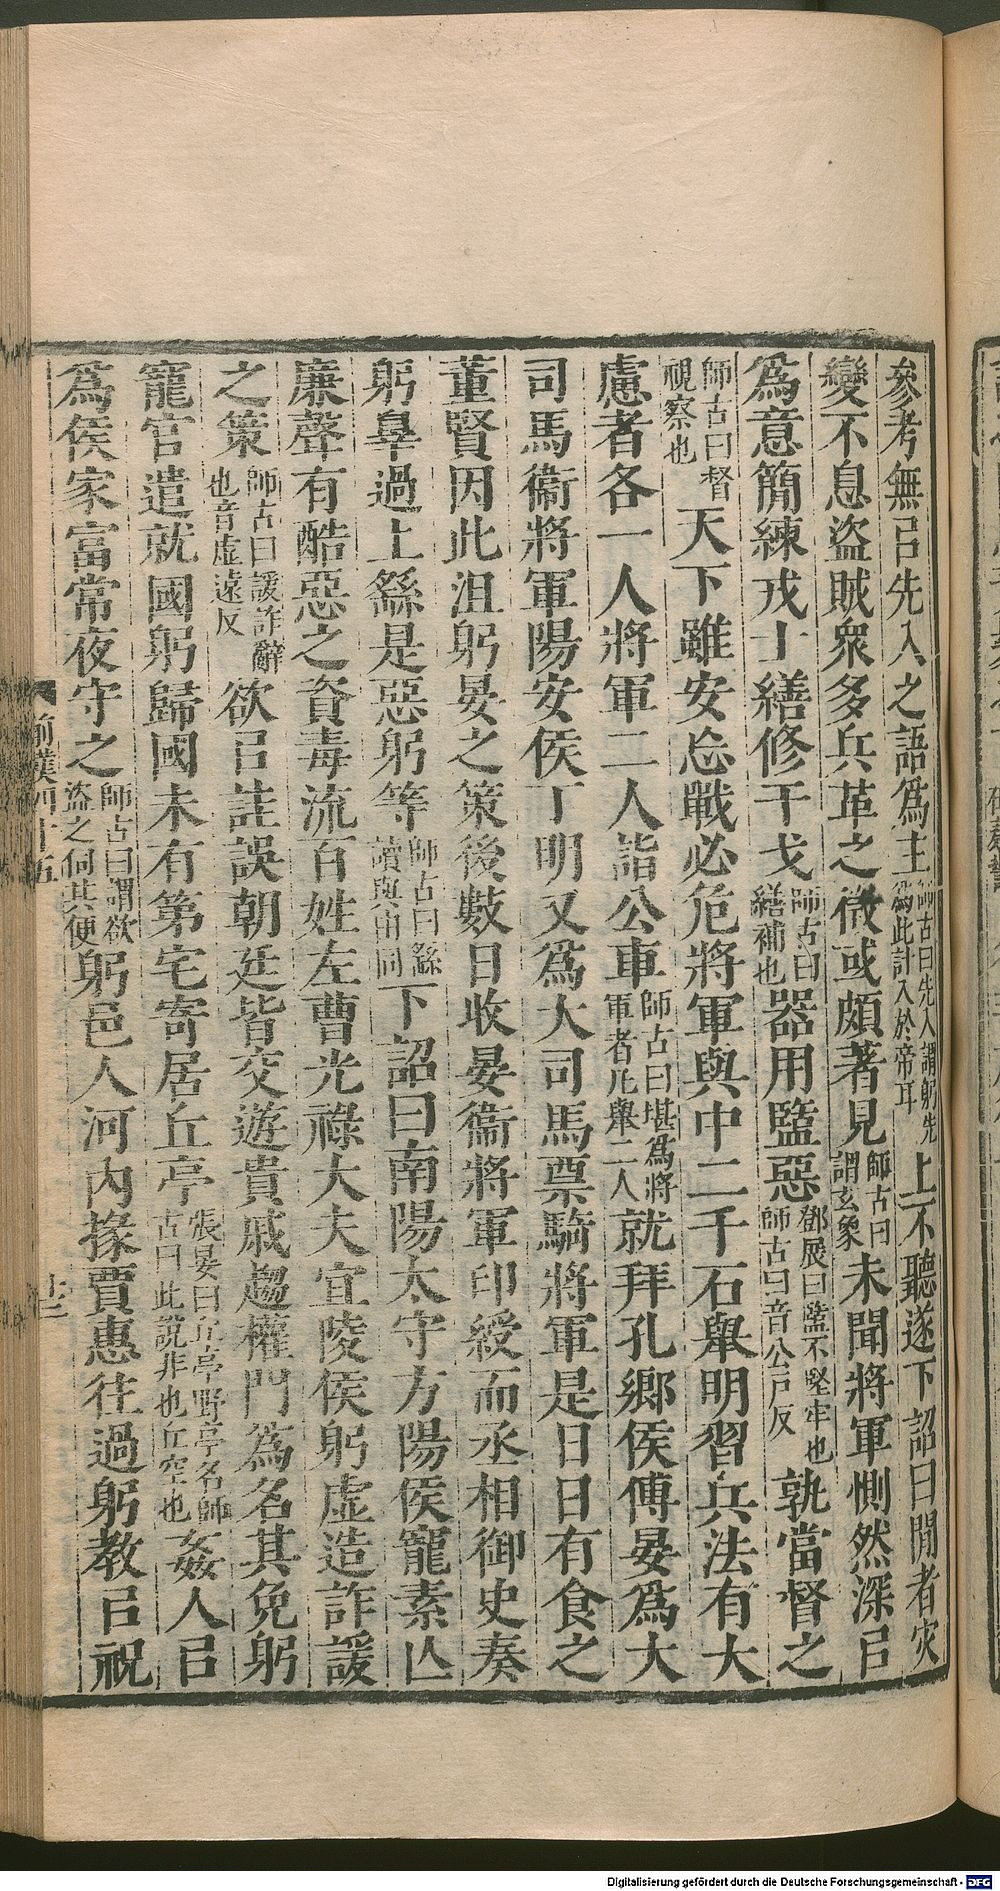 參考無㠯先入之語爲主師古曰先入謂躬先爲此計入於帝耳上不聽遂下詔曰閒者灾
變不息盜賊衆多兵革之徵或頗著見師古曰謂玄象未聞將軍惻然深㠯
爲意簡練戎士繕修干戈師古曰繕補也器用盬惡鄧展曰盬不堅牢也師古曰音公戸反孰當督之
師古曰督視察也天下雖安忘戰必危將軍與中二千石舉明習兵法有大
慮者各一人將軍二人詣公車師古曰堪爲將軍者凡舉二人就拜孔鄉侯傅晏爲大
司馬衞將軍陽安侯丁明又爲大司馬票騎將軍是日日有食之
董賢因此沮躬晏之策後數日收晏衞將軍印綬而丞相御史奏
躬辠過上繇是惡躬等師古曰繇讀與由同下詔曰南陽太守方陽侯寵素亾
廉聲有酷惡之資毒流百姓左曹光祿大夫宜陵侯躬虚造詐諼
之策師古曰諼詐辭也音虚遠反欲㠯詿誤朝廷皆交遊貴戚趨權門爲名其免躬
寵官遣就國躬歸國未有第宅寄居丘亭張晏曰丘亭野亭名師古曰此說非也丘空也姦人㠯
爲侯家富常夜守之師古曰謂欲盜之伺其便躬邑人河内掾賈惠往過躬教㠯祝
前漢四十五
十三
Digitalisierung gefördert durch die Deutsche Forschungsgemeinschaft - DFG